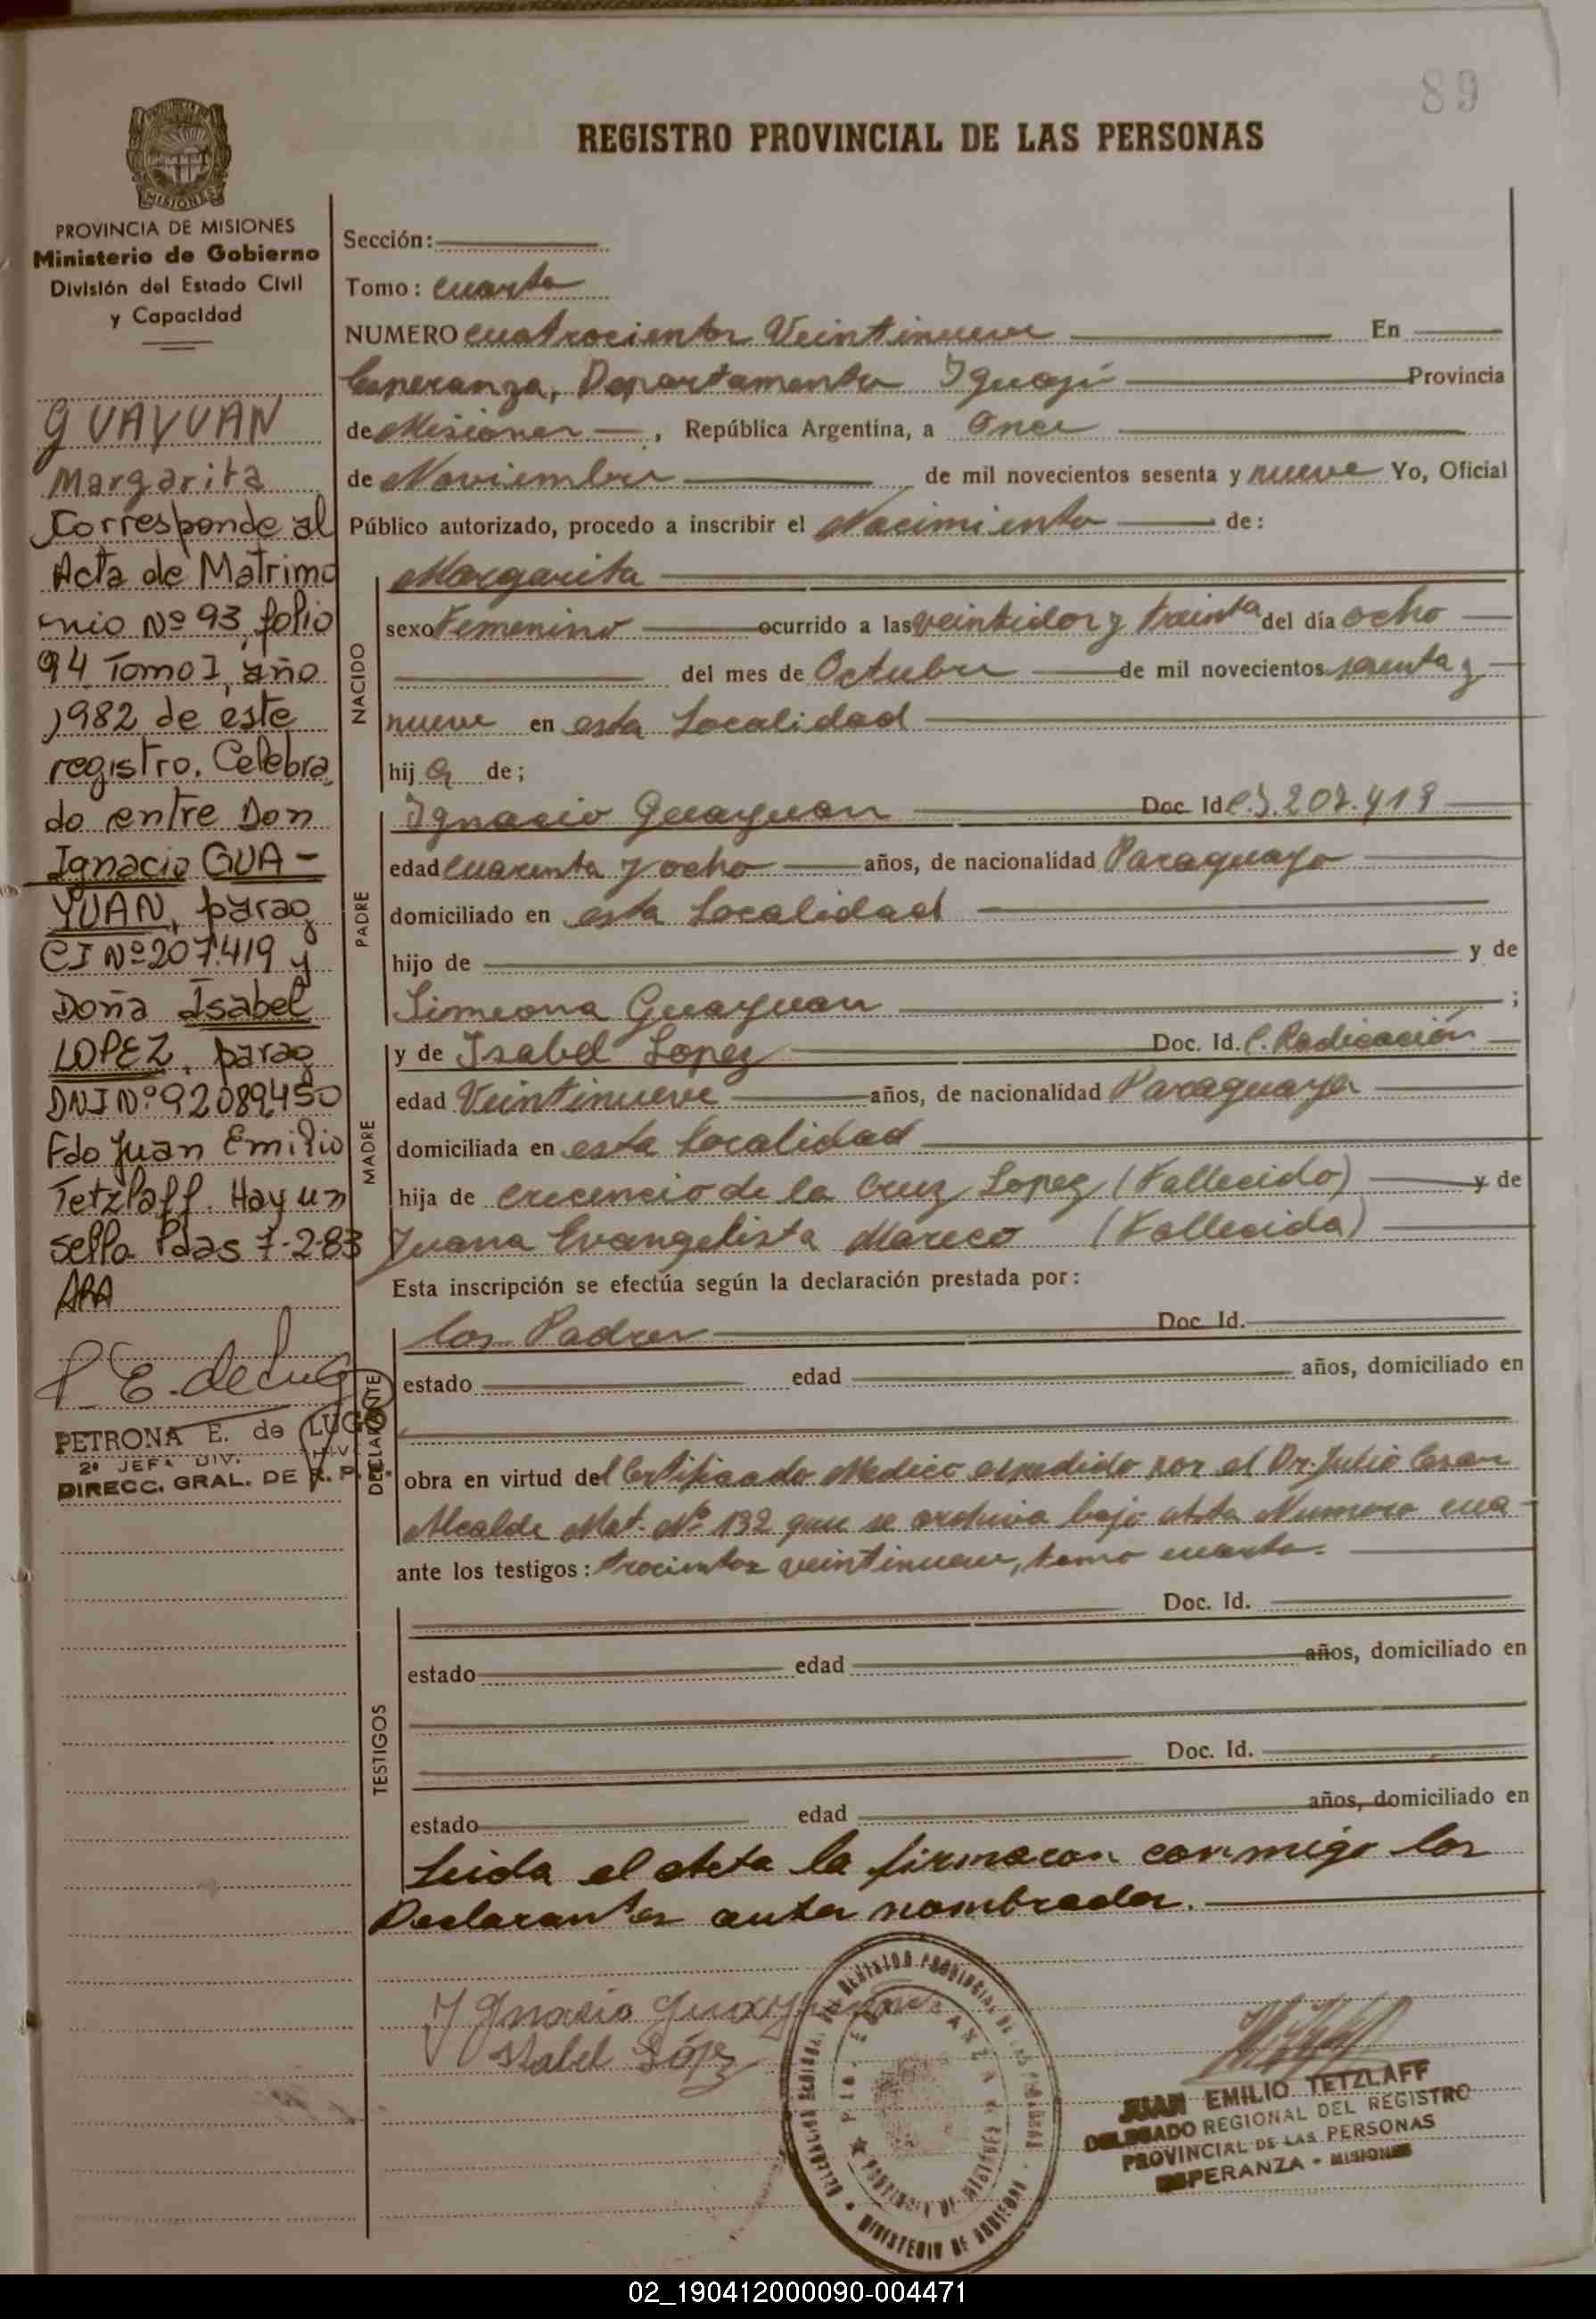 89
REGISTRO PROVINCIAL DE LAS PERSONAS
MISIONES
PROVINCIA DE MISIONES
Ministerio de Gobierno
División del Estado Civil
y Capacidad
GUAYUAN
Margarita
Corresponde al
Acta de Matrimo
nio Nº 93, folio
94 Tomo I, año
1982 de este
registro. Celebra
do entre Don
Ignacio GUA-
YUAN, parag
CI Nº 207.419 y
Doña Isabel
LOPEZ, parag
DNI Nº 92089450
Fdo Juan Emilio
Tetzlaff. Hay un
sello Pdas 7-2-83
ARA
P. E. de Lugo
PETRONA E. de LUGO
2º JEFA DIV.
DIRECC. GRAL. DE R. P.
Sección:
Tomo: Cuarto
NUMERO cuatrocientos Veintinueve En
Esperanza, Departamento Iguazú Provincia
de Misiones, República Argentina, a Once
de Noviembre de mil novecientos sesenta y nueve Yo, Oficial
Público autorizado, procedo a inscribir el Nacimiento de:
NACIDO
Margarita
sexo Femenino ocurrido a las veintidos y treinta del día ocho
del mes de Octubre de mil novecientos sesenta y
nueve en esta Localidad
hij a de;
PADRE
Ignacio Guayuan Doc. Id C.I. 207.419
edad cuarenta y ocho años, de nacionalidad Paraguayo
domiciliado en esta Localidad
hijo de y de
Simeona Guayuan ;
MADRE
y de Isabel Lopez Doc. Id. C. Radicación
edad Veintinueve años, de nacionalidad Paraguaya
domiciliada en esta Localidad
hija de Crecencio de la Cruz Lopez (Fallecido) y de
Juana Evangelista Mareco (Fallecida)
Esta inscripción se efectúa según la declaración prestada por:
DECLARANTE
los Padres Doc. Id.
estado edad años, domiciliado en
obra en virtud del Certificado Medico expedido por el Dr. Julio Cesar
Alcalde Mat. Nº 132 que se archiva bajo Acta Numero cua-
ante los testigos: trocientos veintinueve, tomo cuarto.
TESTIGOS
Doc. Id.
estado edad años, domiciliado en
Doc. Id.
estado edad años, domiciliado en
Leida el Acta la firmaron conmigo los
Declarantes antes nombrados.
Ignacio Guayuan
Isabel López
PROVINCIA DE MISIONES
MINISTERIO DE GOBIERNO
JUAN EMILIO TETZLAFF
DELEGADO REGIONAL DEL REGISTRO
PROVINCIAL DE LAS PERSONAS
ESPERANZA - MISIONES
02_190412000090-004471